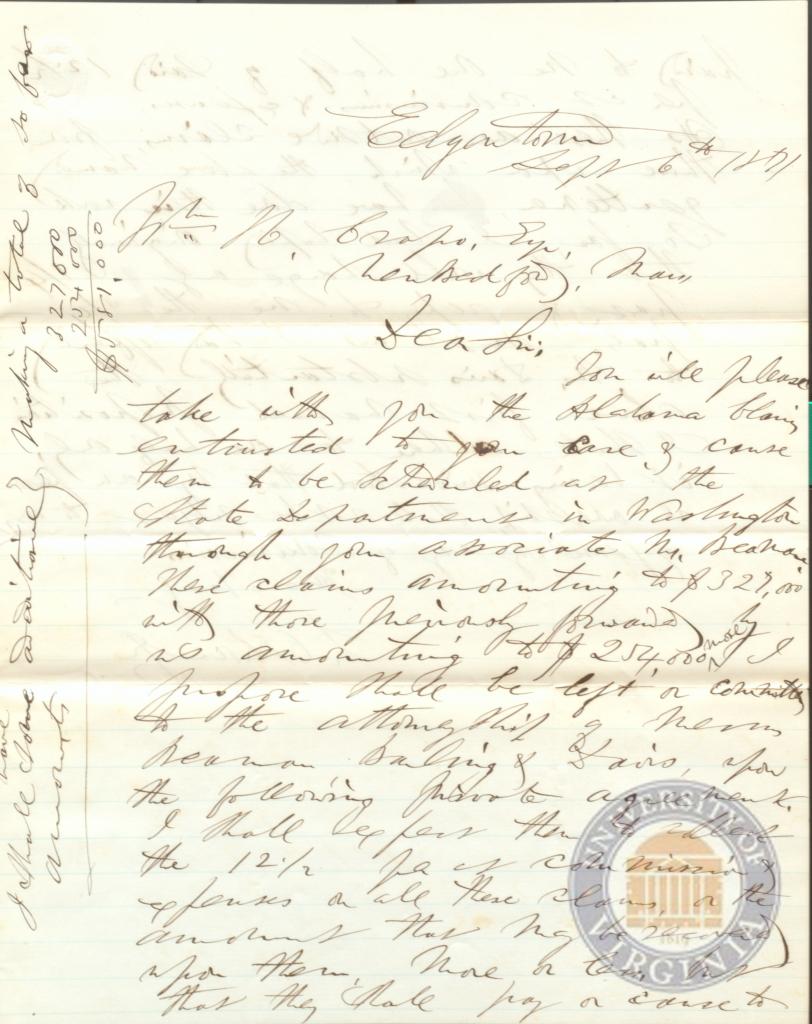 Edgartown
Sept 6th 1871
Wm W. Crapo, Esq,
New Bedford, Mass
Dear Sir;
You will please
take with you the Alabama Claims
entrusted to your care & cause
them to be scheduled at the
State Department in Washington
through your associate Mr. Beaman
These claims amounting to $327,000
with those previously forwarded by
us amounting to $254,000 more I
propose shall be left or committed
to the attorneyship of Messrs
Beaman & Davis, upon
the following private agreement.
I shall expect them to collect
the 12 1/2 per ct commission &
expenses on all these claims, or the
amount that may be received
upon them, more or less, but
that they shall pay or cause to
I shall have some additional amounts
Making a total of so far
327000
254000
$581,000
UNIVERSITY OF VIRGINIA
1819